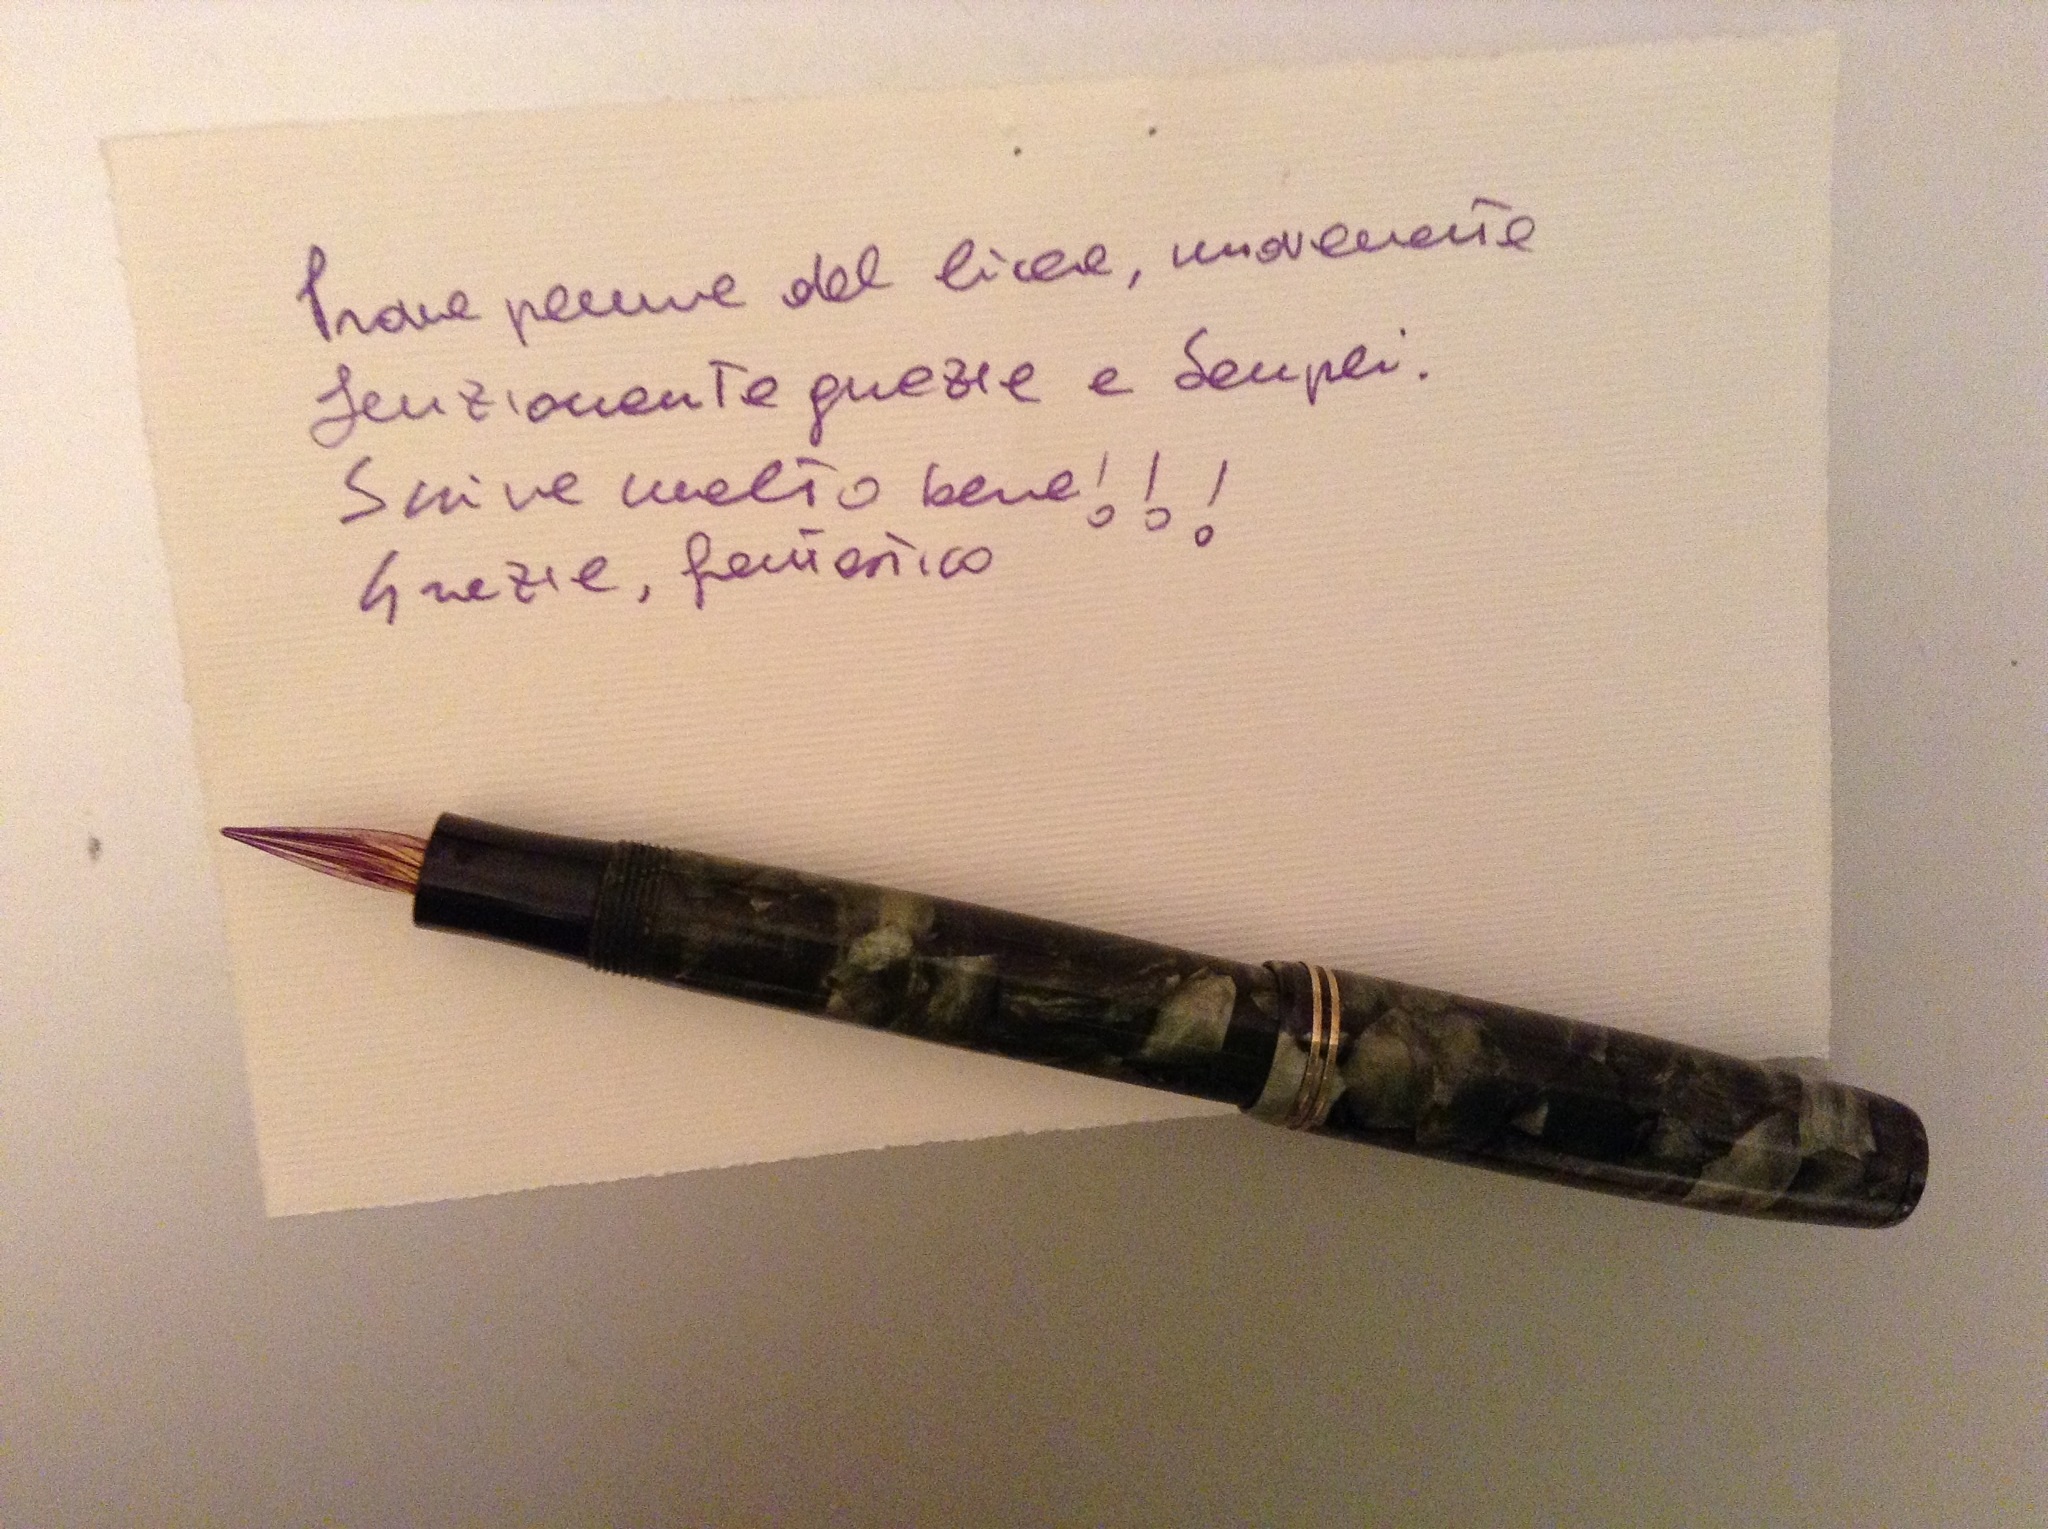 Prova penna del liceo, nuovamente
funzionante grazie a Sempei.
Scrive molto bene!!!
Grazie, fantastico